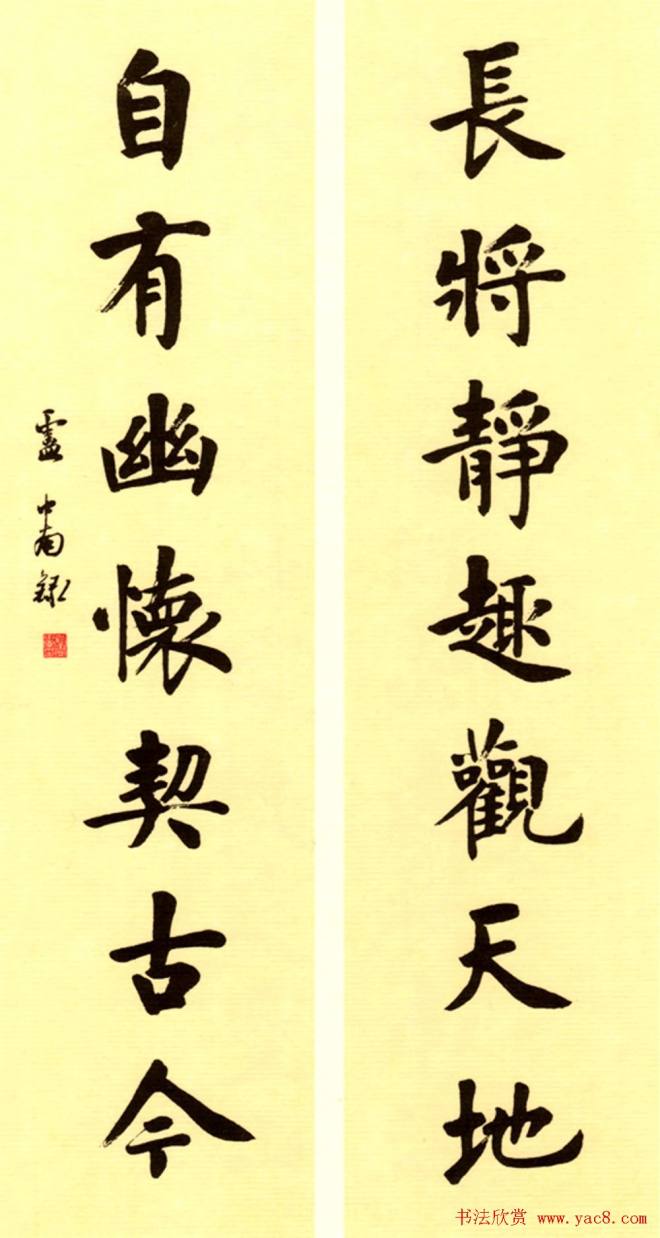 長將靜趣觀天地
自有幽懷契古今
盧中南
书法欣赏 www.yac8.com